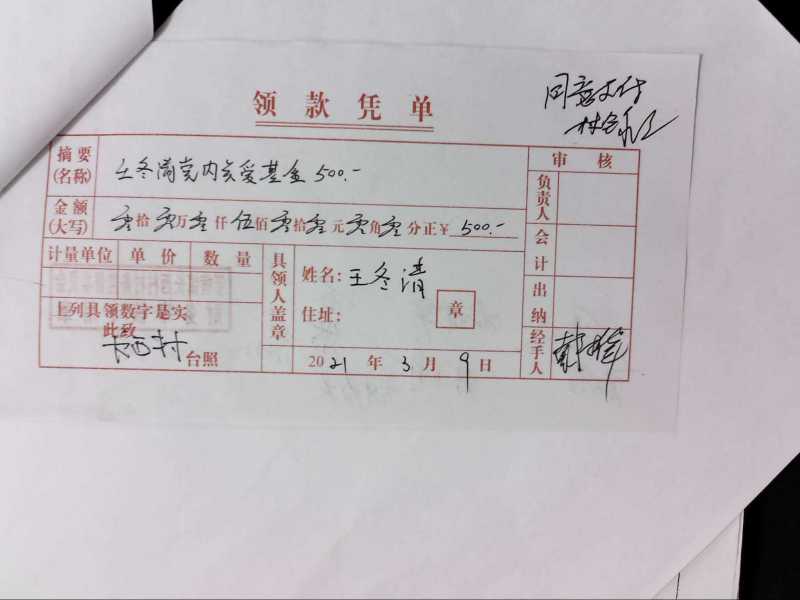 领款凭单
同意支付
摘要
(名称)
王冬清党内关爱基金 500.-
审核
金额
(大写)
零拾零万零仟伍佰零拾零元零角零分正￥500.-
负责人
计量单位 单价 数量
会计
具领人盖章
姓名: 王冬清
住址:
章
出纳
上列具领数字是实
此致
西村台照
2021年3月9日
经手人